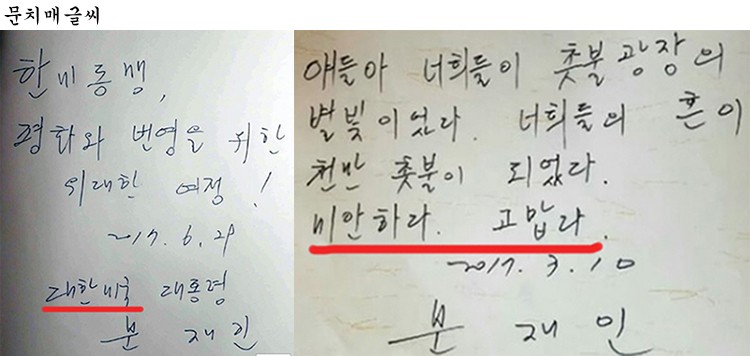 문치매 글씨
한미동맹,
평화와 번영을 위한
위대한 여정!
2017. 6. 28
대한미국 대통령
문 재 인
얘들아 너희들이 촛불광장의
별빛이었다. 너희들의 혼이
천만 촛불이 되었다.
미안하다. 고맙다.
2017. 3. 10
문 재 인